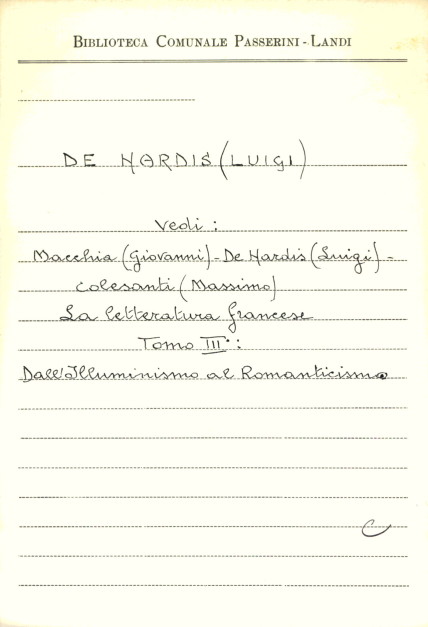 BIBLIOTECA COMUNALE PASSERINI-LANDI
DE NARDIS (LUIGI)
Vedi :
Macchia (Giovanni) - De Nardis (Luigi) -
Colesanti (Massimo)
La letteratura francese
Tomo III° :
Dall'Illuminismo al Romanticismo
C